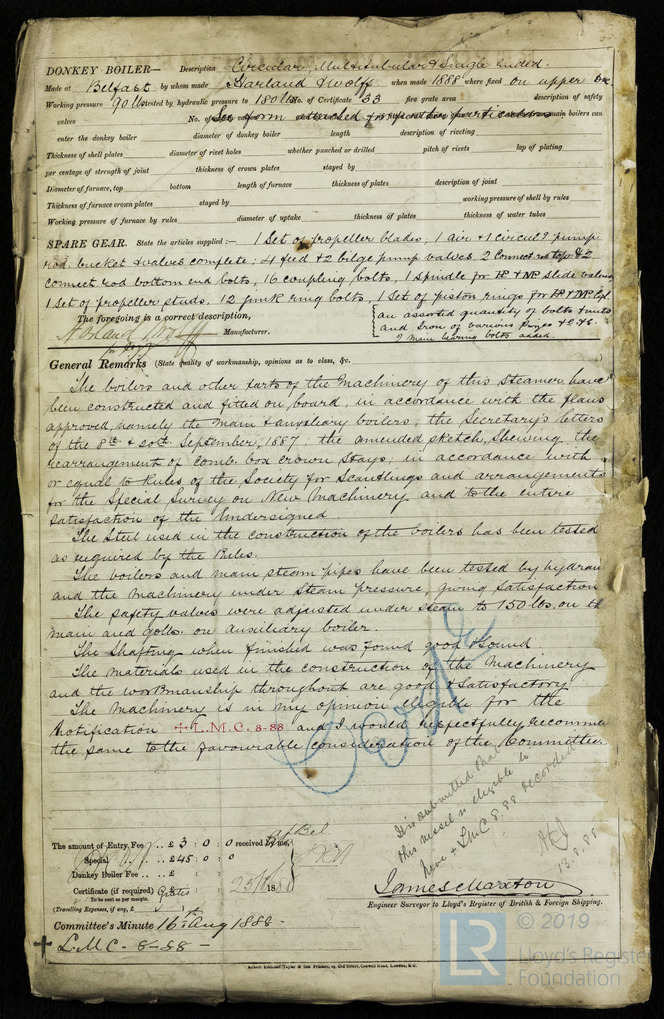 DONKEY BOILER— Description Circular, Multitubular & Single ended.
Made at Belfast by whom made Harland & Wolff when made 1888 where fixed on upper Dk.
Working pressure 90 lbs tested by hydraulic pressure to 180 lbs No. of Certificate 33 fire grate area description of safety
valves No. of See form attached for particulars main boilers can
enter the donkey boiler diameter of donkey boiler length description of riveting
Thickness of shell plates diameter of rivet holes whether punched or drilled pitch of rivets lap of plating
per centage of strength of joint thickness of crown plates stayed by
Diameter of furnace, top bottom length of furnace thickness of plates description of joint
Thickness of furnace crown plates stayed by working pressure of shell by rules
Working pressure of furnace by rules diameter of uptake thickness of plates thickness of water tubes
SPARE GEAR. State the articles supplied:— 1 Set of propeller blades, 1 air & 1 circulg pump
rod bucket & valves complete; 4 feed & 2 bilge pump valves 2 Connect rod top & 2
Connect. rod bottom end bolts, 16 coupling bolts, 1 spindle for HP & MP slide valves
1 Set of propeller studs. 12 junk ring bolts, 1 Set of piston rings for HP & MP Cyl.
an assorted quantity of bolts & nuts
and Iron of various sizes &c &c.
2 Main bearing bolts added.
The foregoing is a correct description,
Harland & Wolff Manufacturer.
General Remarks (State quality of workmanship, opinions as to class, &c.
The boilers and other parts of the Machinery of this Steamer have
been constructed and fitted on board, in accordance with the plans
approved, namely the main & auxiliary boilers; the Secretary's letters
of the 8th & 20th September, 1887, the amended sketch, Shewing the
rearrangement of Comb. box crown Stays; in accordance with
or equal to Rules of the Society for Scantlings and arrangements
for the Special Survey on New Machinery and to the entire
satisfaction of the Undersigned.
The Steel used in the construction of the boilers has been tested
as required by the Rules.
The boilers and main steam pipes have been tested by hydrau
and the Machinery under Steam pressure, giving Satisfaction
The safety valves were adjusted under steam to 150 lbs. on th
main and 90 lbs. on auxiliary boiler
The Shafting when finished was found good & Sound
The materials used in the construction of the Machinery
and the workmanship throughout are good & Satisfactory
The Machinery is in my opinion eligible for the
Notification ✠ L.M.C. 8-88 and I would respectfully recomme
the same to the favourable consideration of the Committee
It is submitted that
this vessel is eligible to
have + LMC 8.88 recorded
13.8.88
The amount of Entry Fee .. £ 3 : 0 : 0 received by me,
Special £45 : 0 : 0
Donkey Boiler Fee .. .. £ : :
Certificate (if required) Gratis 18 88
To be sent as per margin.
(Travelling Expenses, if any, £
James Maxton
Engineer Surveyor to Lloyd's Register of British & Foreign Shipping.
Committee's Minute 16th Aug 1888 -
+ L.M.C - 8-88 -
© 2019
LR
Lloyd's Register
Foundation